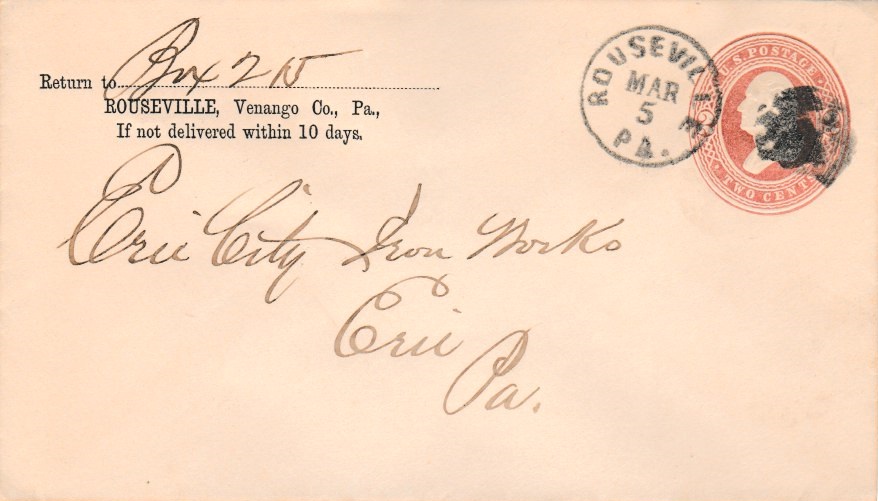 Return to Box 215
ROUSEVILLE, Venango Co., Pa.,
If not delivered within 10 days.
ROUSEVILLE
MAR
5
PA.
U.S. POSTAGE
TWO CENTS
Erie City Iron Works
Erie
Pa.